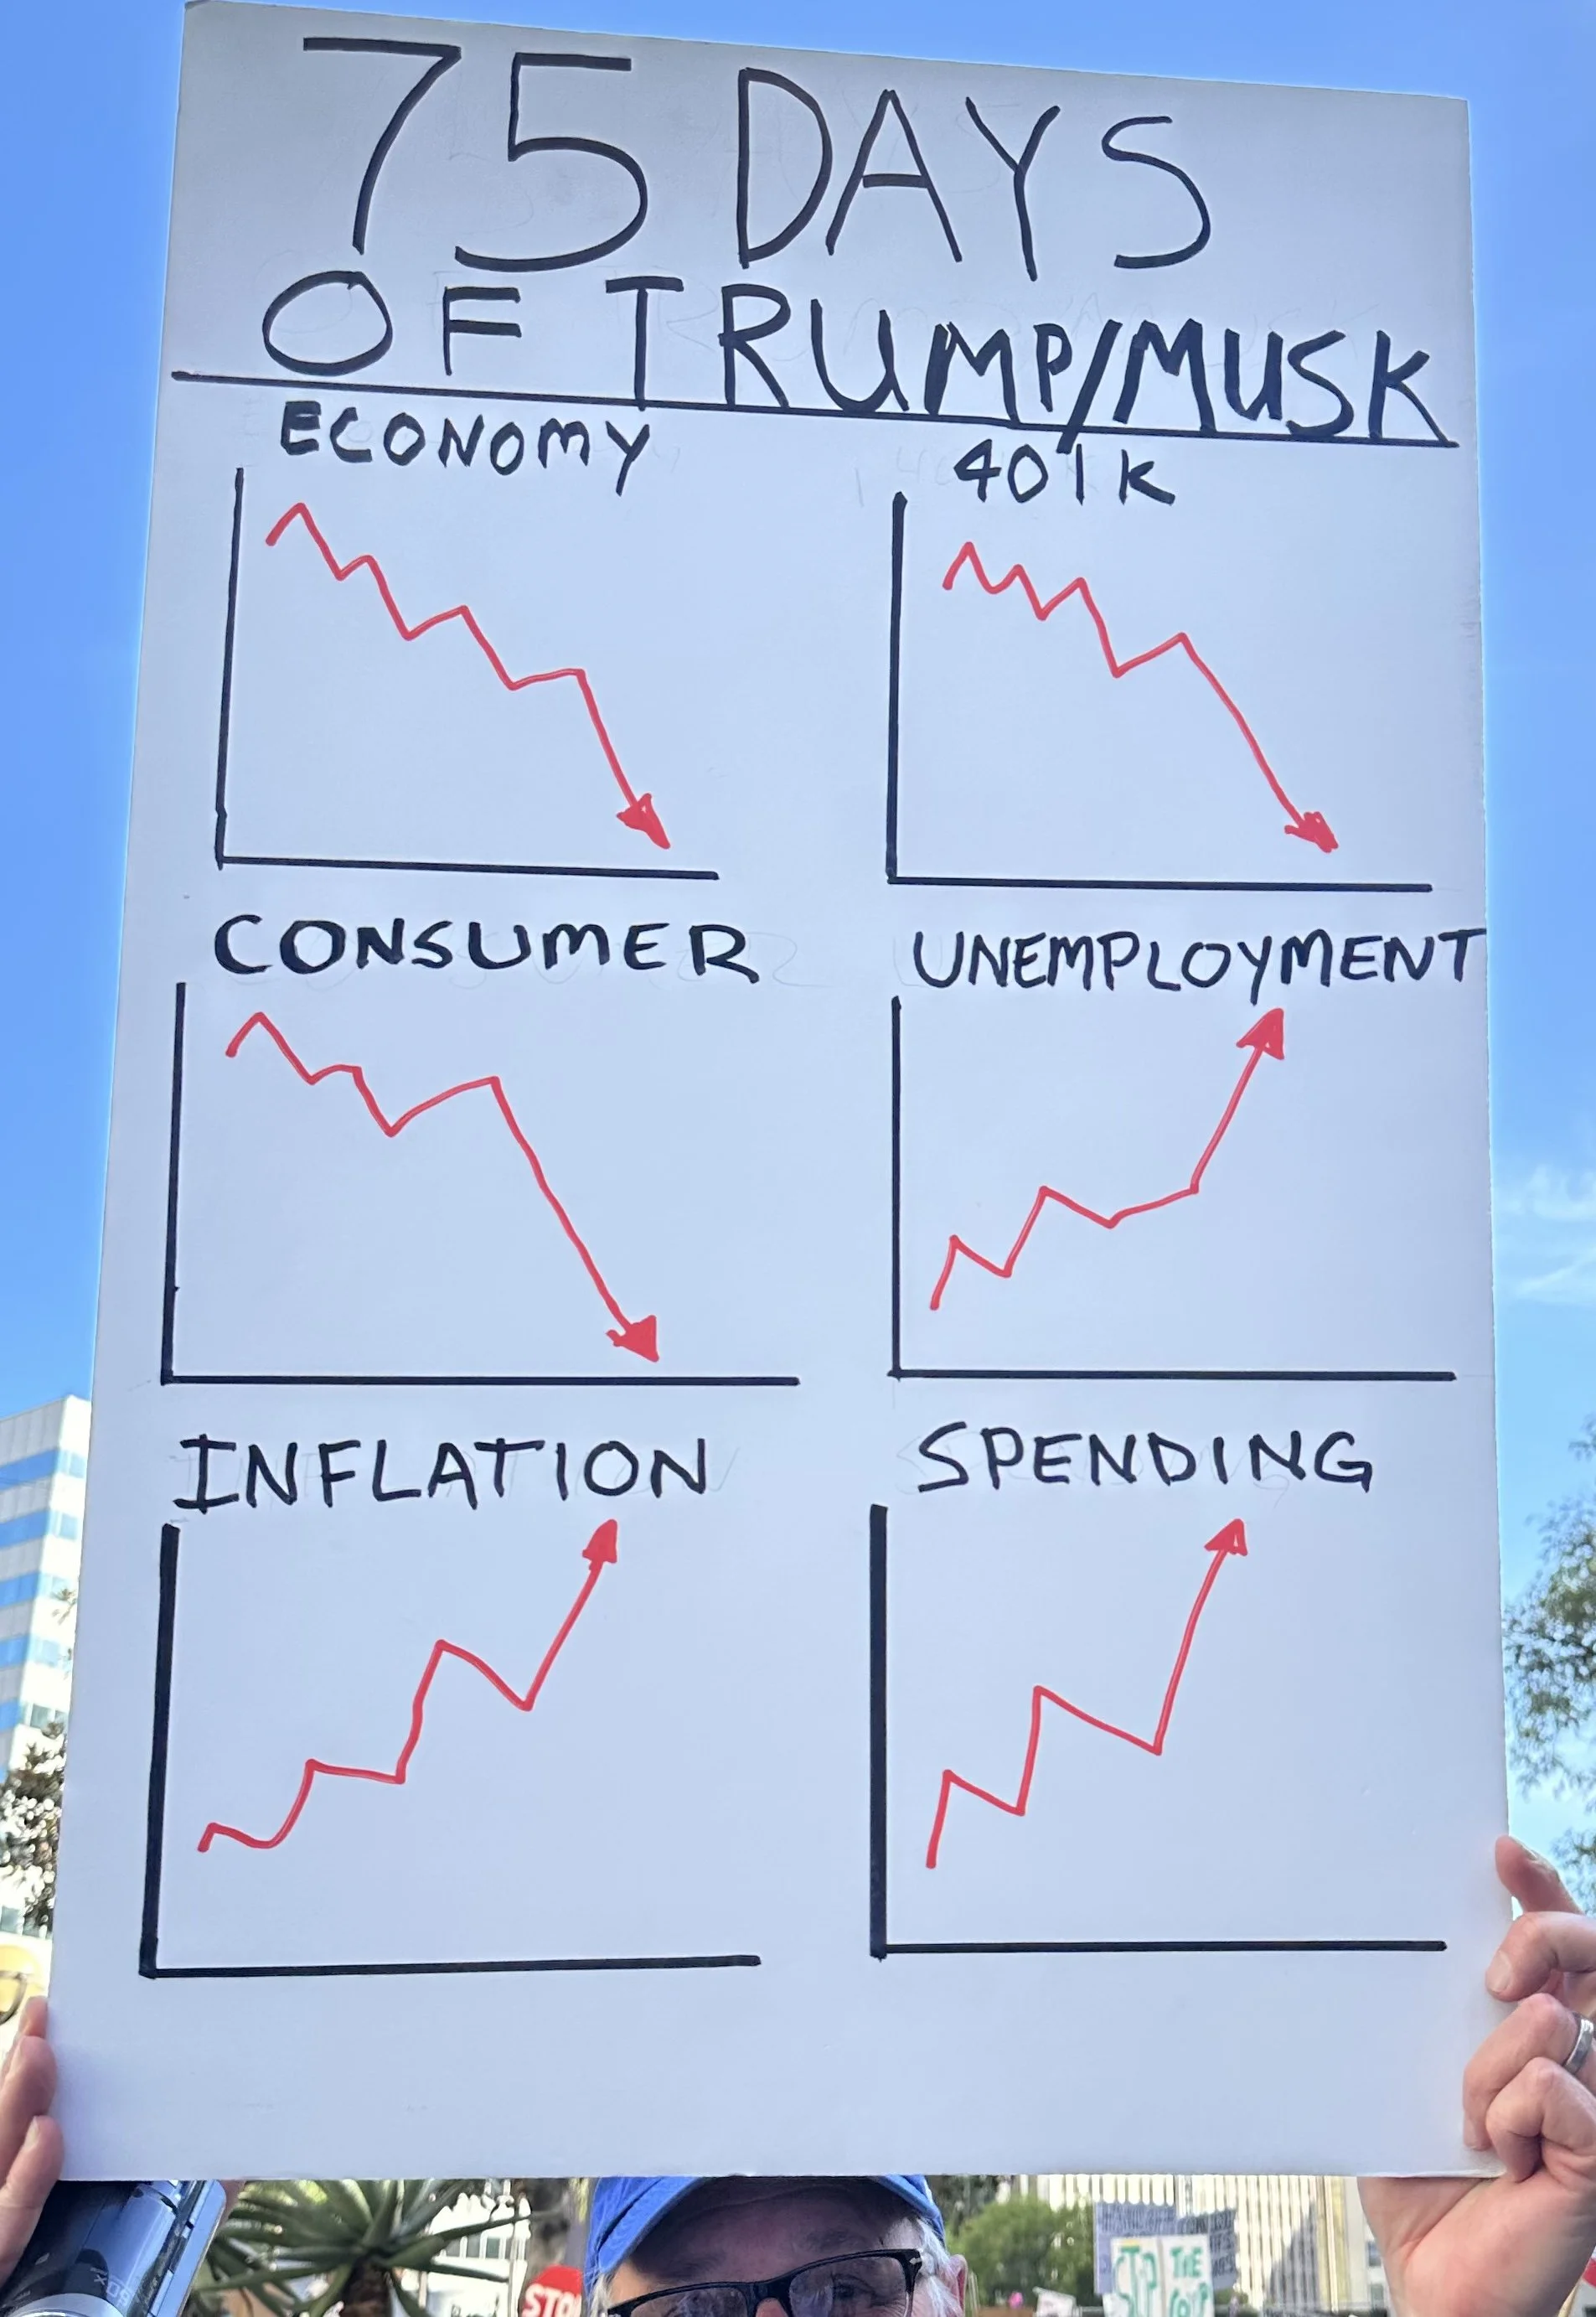 75 DAYS
OF TRUMP/MUSK
ECONOMY
401K
CONSUMER
UNEMPLOYMENT
INFLATION
SPENDING
STO
THE